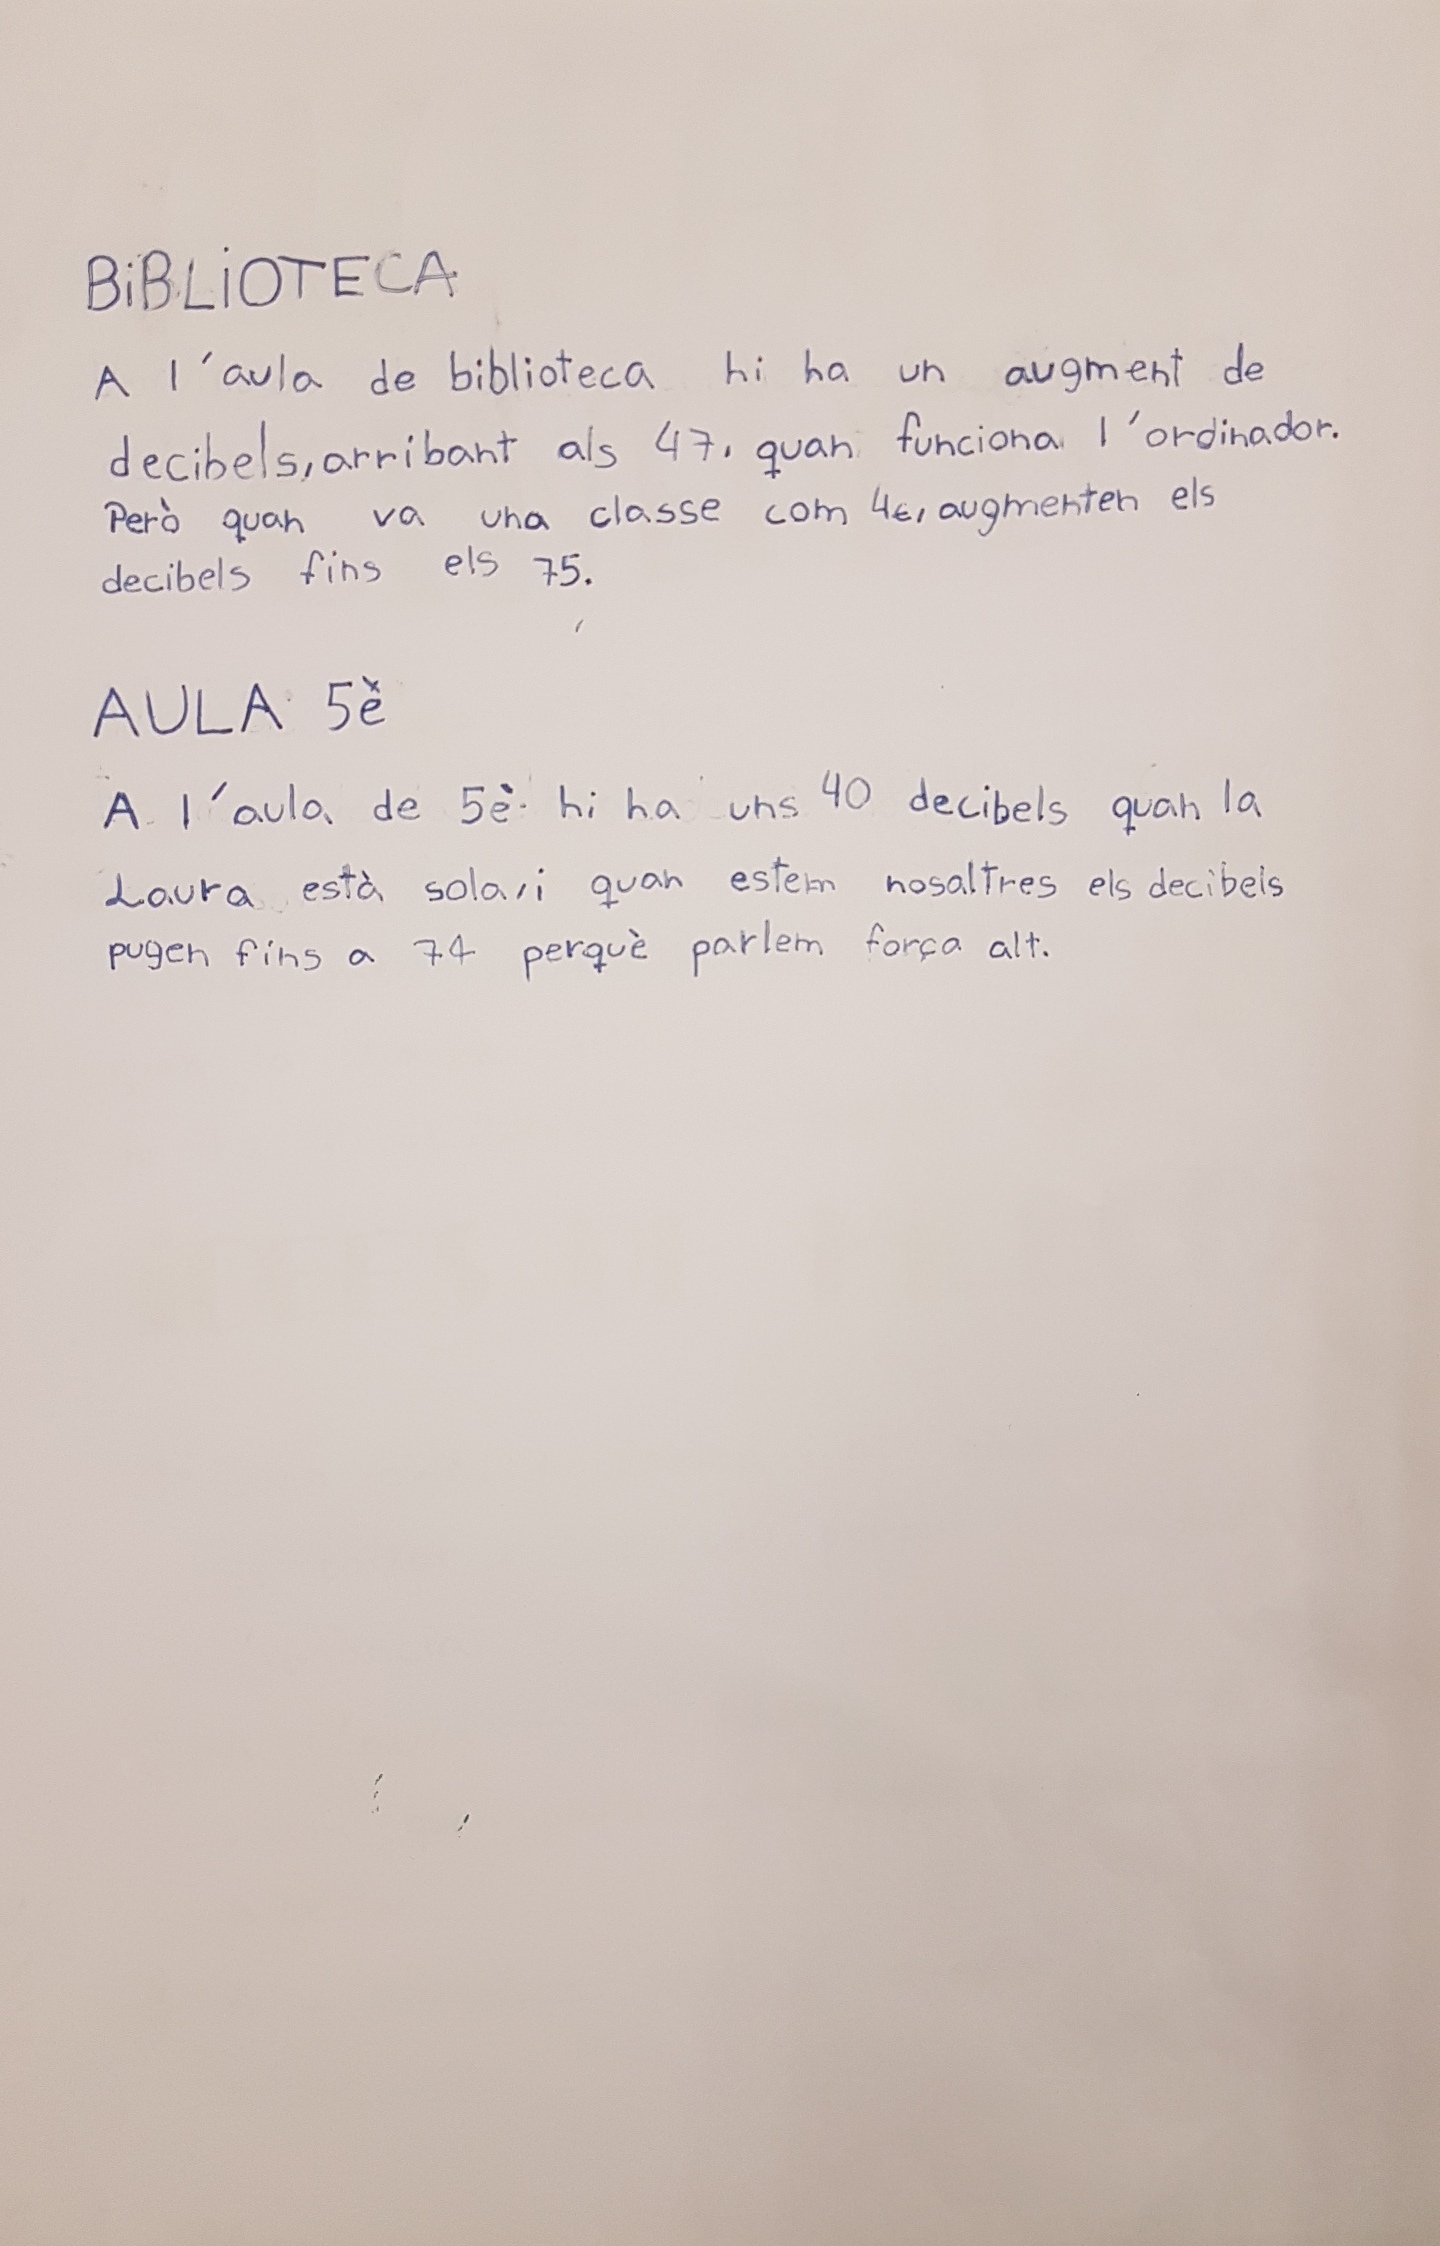 BiBLiOTECA
A l'aula de biblioteca hi ha un augment de
decibels, arribant als 47, quan funciona l'ordinador.
Però quan va una classe com 4t, augmenten els
decibels fins els 75.
AULA 5è
A l'aula de 5è hi ha uns 40 decibels quan la
Laura està sola, i quan estem nosaltres els decibels
pugen fins a 74 perquè parlem força alt.